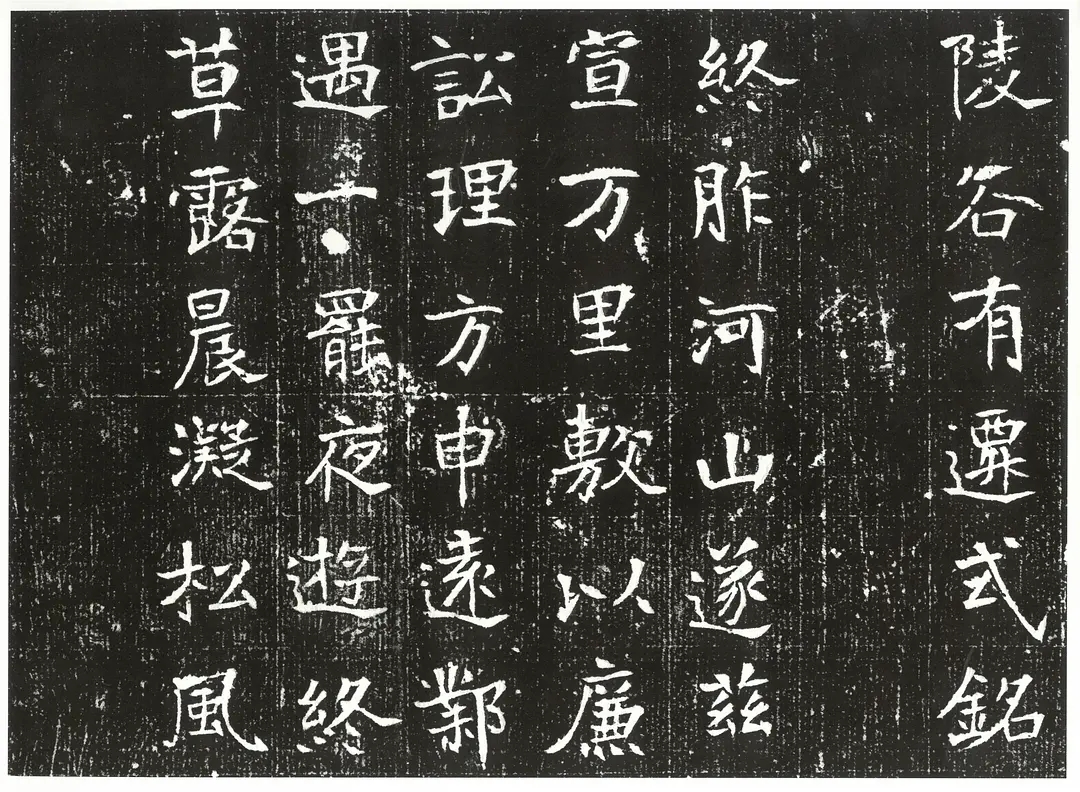 陵谷有遷式銘
終胙河山遂茲
宣万里敷以廉
訟理方申遠鄴
遇一罷夜遊終
草露晨凝松風